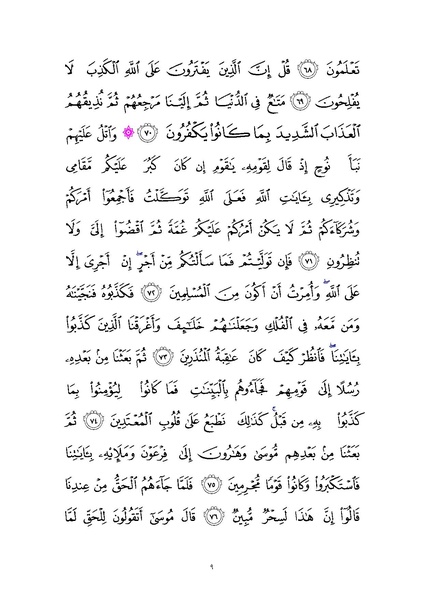 تَعْلَمُونَ ٦٨ قُلْ إِنَّ ٱلَّذِينَ يَفْتَرُونَ عَلَى ٱللَّهِ ٱلْكَذِبَ لَا
يُفْلِحُونَ ٦٩ مَتَٰعٌ فِى ٱلدُّنْيَا ثُمَّ إِلَيْنَا مَرْجِعُهُمْ ثُمَّ نُذِيقُهُمُ
ٱلْعَذَابَ ٱلشَّدِيدَ بِمَا كَانُوا۟ يَكْفُرُونَ ٧٠ ۞ وَٱتْلُ عَلَيْهِمْ
نَبَأَ نُوحٍ إِذْ قَالَ لِقَوْمِهِۦ يَٰقَوْمِ إِن كَانَ كَبُرَ عَلَيْكُم مَّقَامِى
وَتَذْكِيرِى بِـَٔايَٰتِ ٱللَّهِ فَعَلَى ٱللَّهِ تَوَكَّلْتُ فَأَجْمِعُوٓا۟ أَمْرَكُمْ
وَشُرَكَآءَكُمْ ثُمَّ لَا يَكُنْ أَمْرُكُمْ عَلَيْكُمْ غُمَّةً ثُمَّ ٱقْضُوٓا۟ إِلَىَّ وَلَا
تُنظِرُونِ ٧١ فَإِن تَوَلَّيْتُمْ فَمَا سَأَلْتُكُم مِّنْ أَجْرٍ ۖ إِنْ أَجْرِىَ إِلَّا
عَلَى ٱللَّهِ ۖ وَأُمِرْتُ أَنْ أَكُونَ مِنَ ٱلْمُسْلِمِينَ ٧٢ فَكَذَّبُوهُ فَنَجَّيْنَٰهُ
وَمَن مَّعَهُۥ فِى ٱلْفُلْكِ وَجَعَلْنَٰهُمْ خَلَٰٓئِفَ وَأَغْرَقْنَا ٱلَّذِينَ كَذَّبُوا۟
بِـَٔايَٰتِنَا ۖ فَٱنظُرْ كَيْفَ كَانَ عَٰقِبَةُ ٱلْمُنذَرِينَ ٧٣ ثُمَّ بَعَثْنَا مِنۢ بَعْدِهِۦ
رُسُلًا إِلَىٰ قَوْمِهِمْ فَجَآءُوهُم بِٱلْبَيِّنَٰتِ فَمَا كَانُوا۟ لِيُؤْمِنُوا۟ بِمَا
كَذَّبُوا۟ بِهِۦ مِن قَبْلُ ۚ كَذَٰلِكَ نَطْبَعُ عَلَىٰ قُلُوبِ ٱلْمُعْتَدِينَ ٧٤ ثُمَّ
بَعَثْنَا مِنۢ بَعْدِهِم مُّوسَىٰ وَهَٰرُونَ إِلَىٰ فِرْعَوْنَ وَمَلَإِي۟هِۦ بِـَٔايَٰتِنَا
فَٱسْتَكْبَرُوا۟ وَكَانُوا۟ قَوْمًا مُّجْرِمِينَ ٧٥ فَلَمَّا جَآءَهُمُ ٱلْحَقُّ مِنْ عِندِنَا
قَالُوٓا۟ إِنَّ هَٰذَا لَسِحْرٌ مُّبِينٌ ٧٦ قَالَ مُوسَىٰٓ أَتَقُولُونَ لِلْحَقِّ لَمَّا
٩